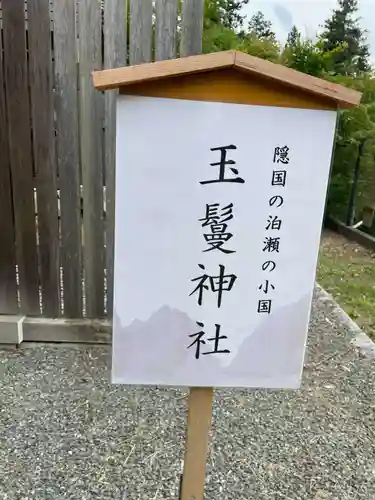 隠国の泊瀬の小国
玉鬘神社